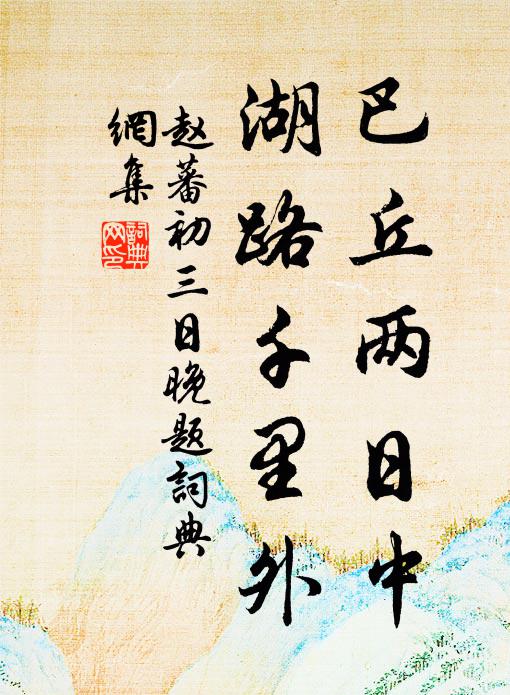 巴丘两日中
湖路千里外
赵蕃初三日晚题詞典
網集
詞典
网印